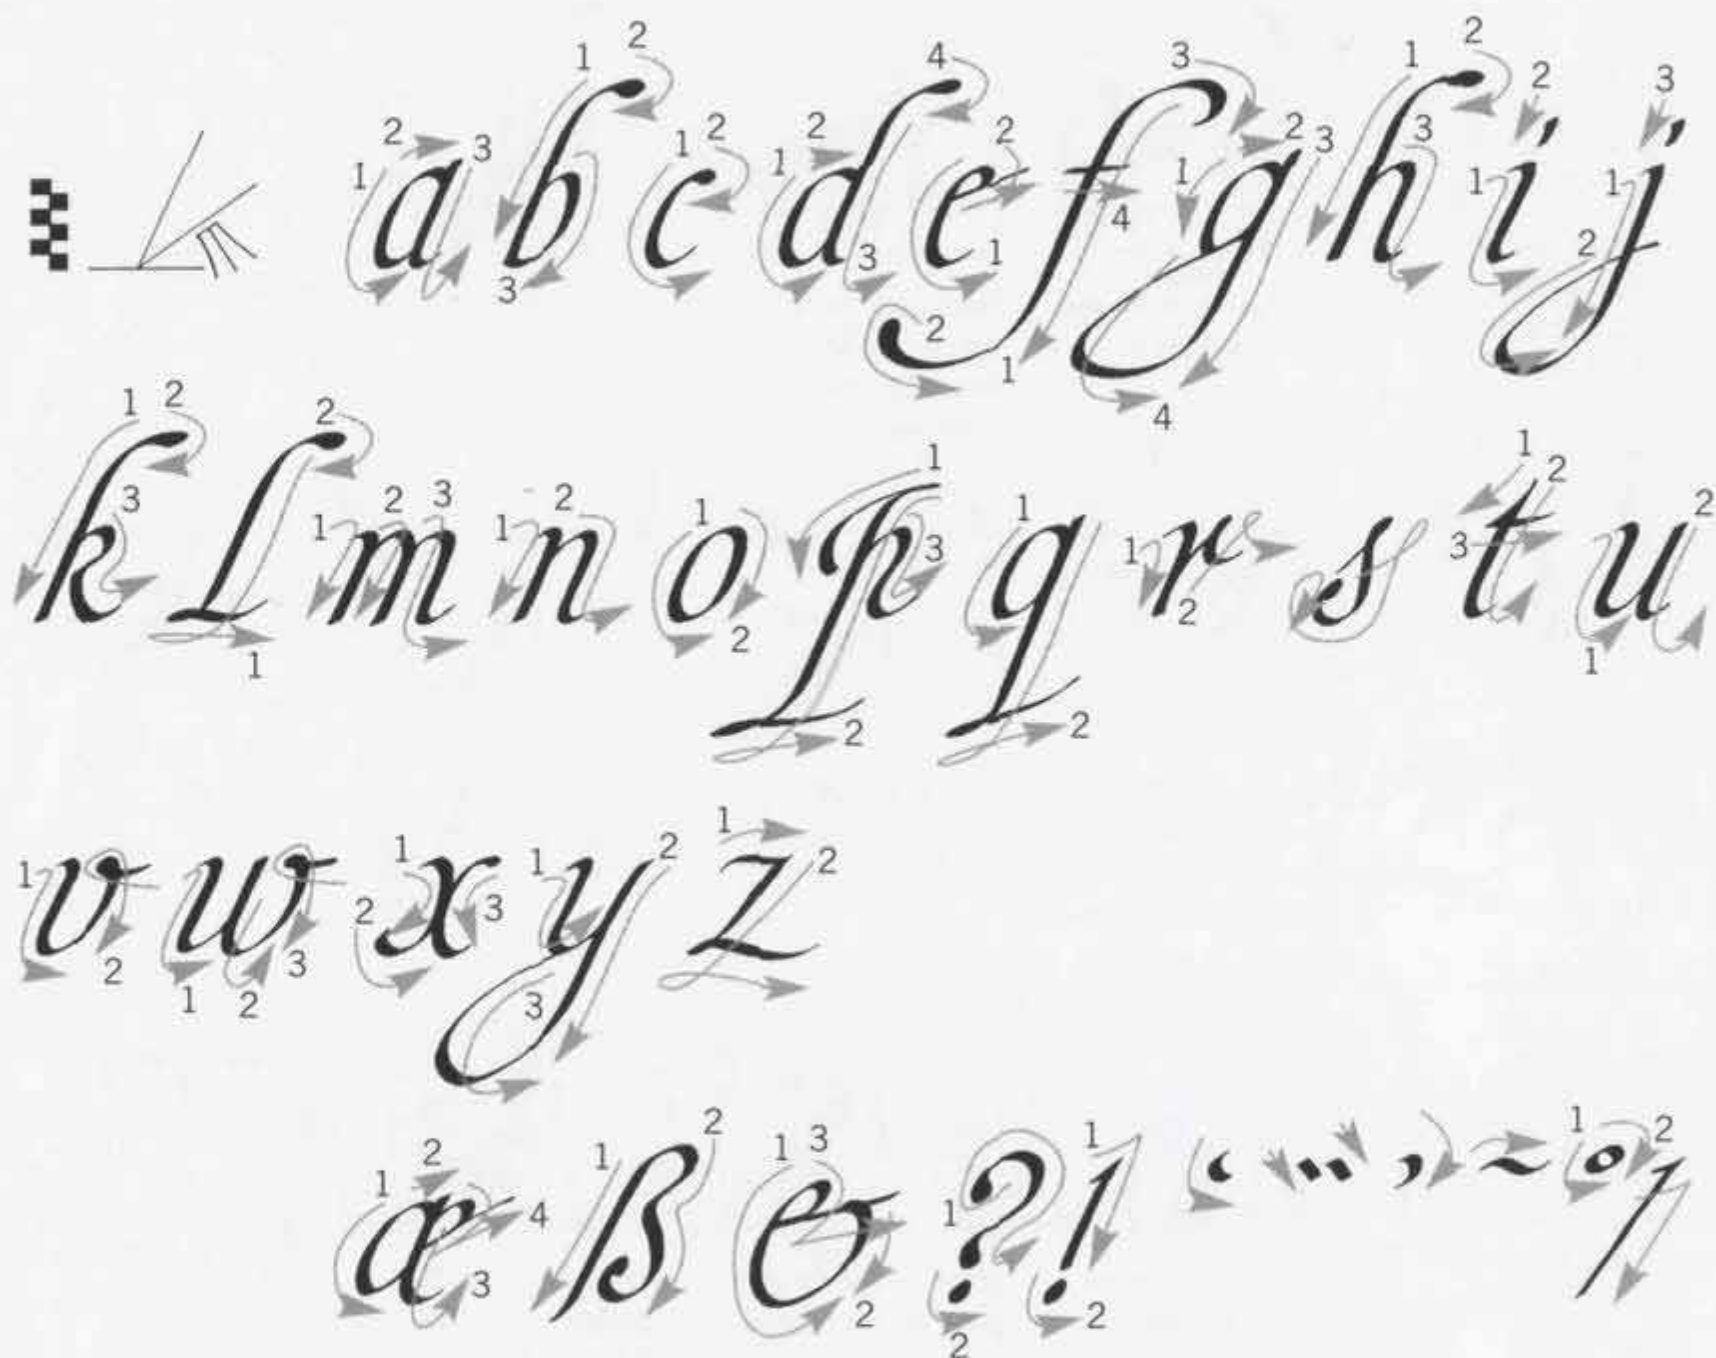 a b c d e f g h i j
k l m n o p q r s t u
v w x y z
æ ß & ? ! ‘ “ ’ ~ ° /